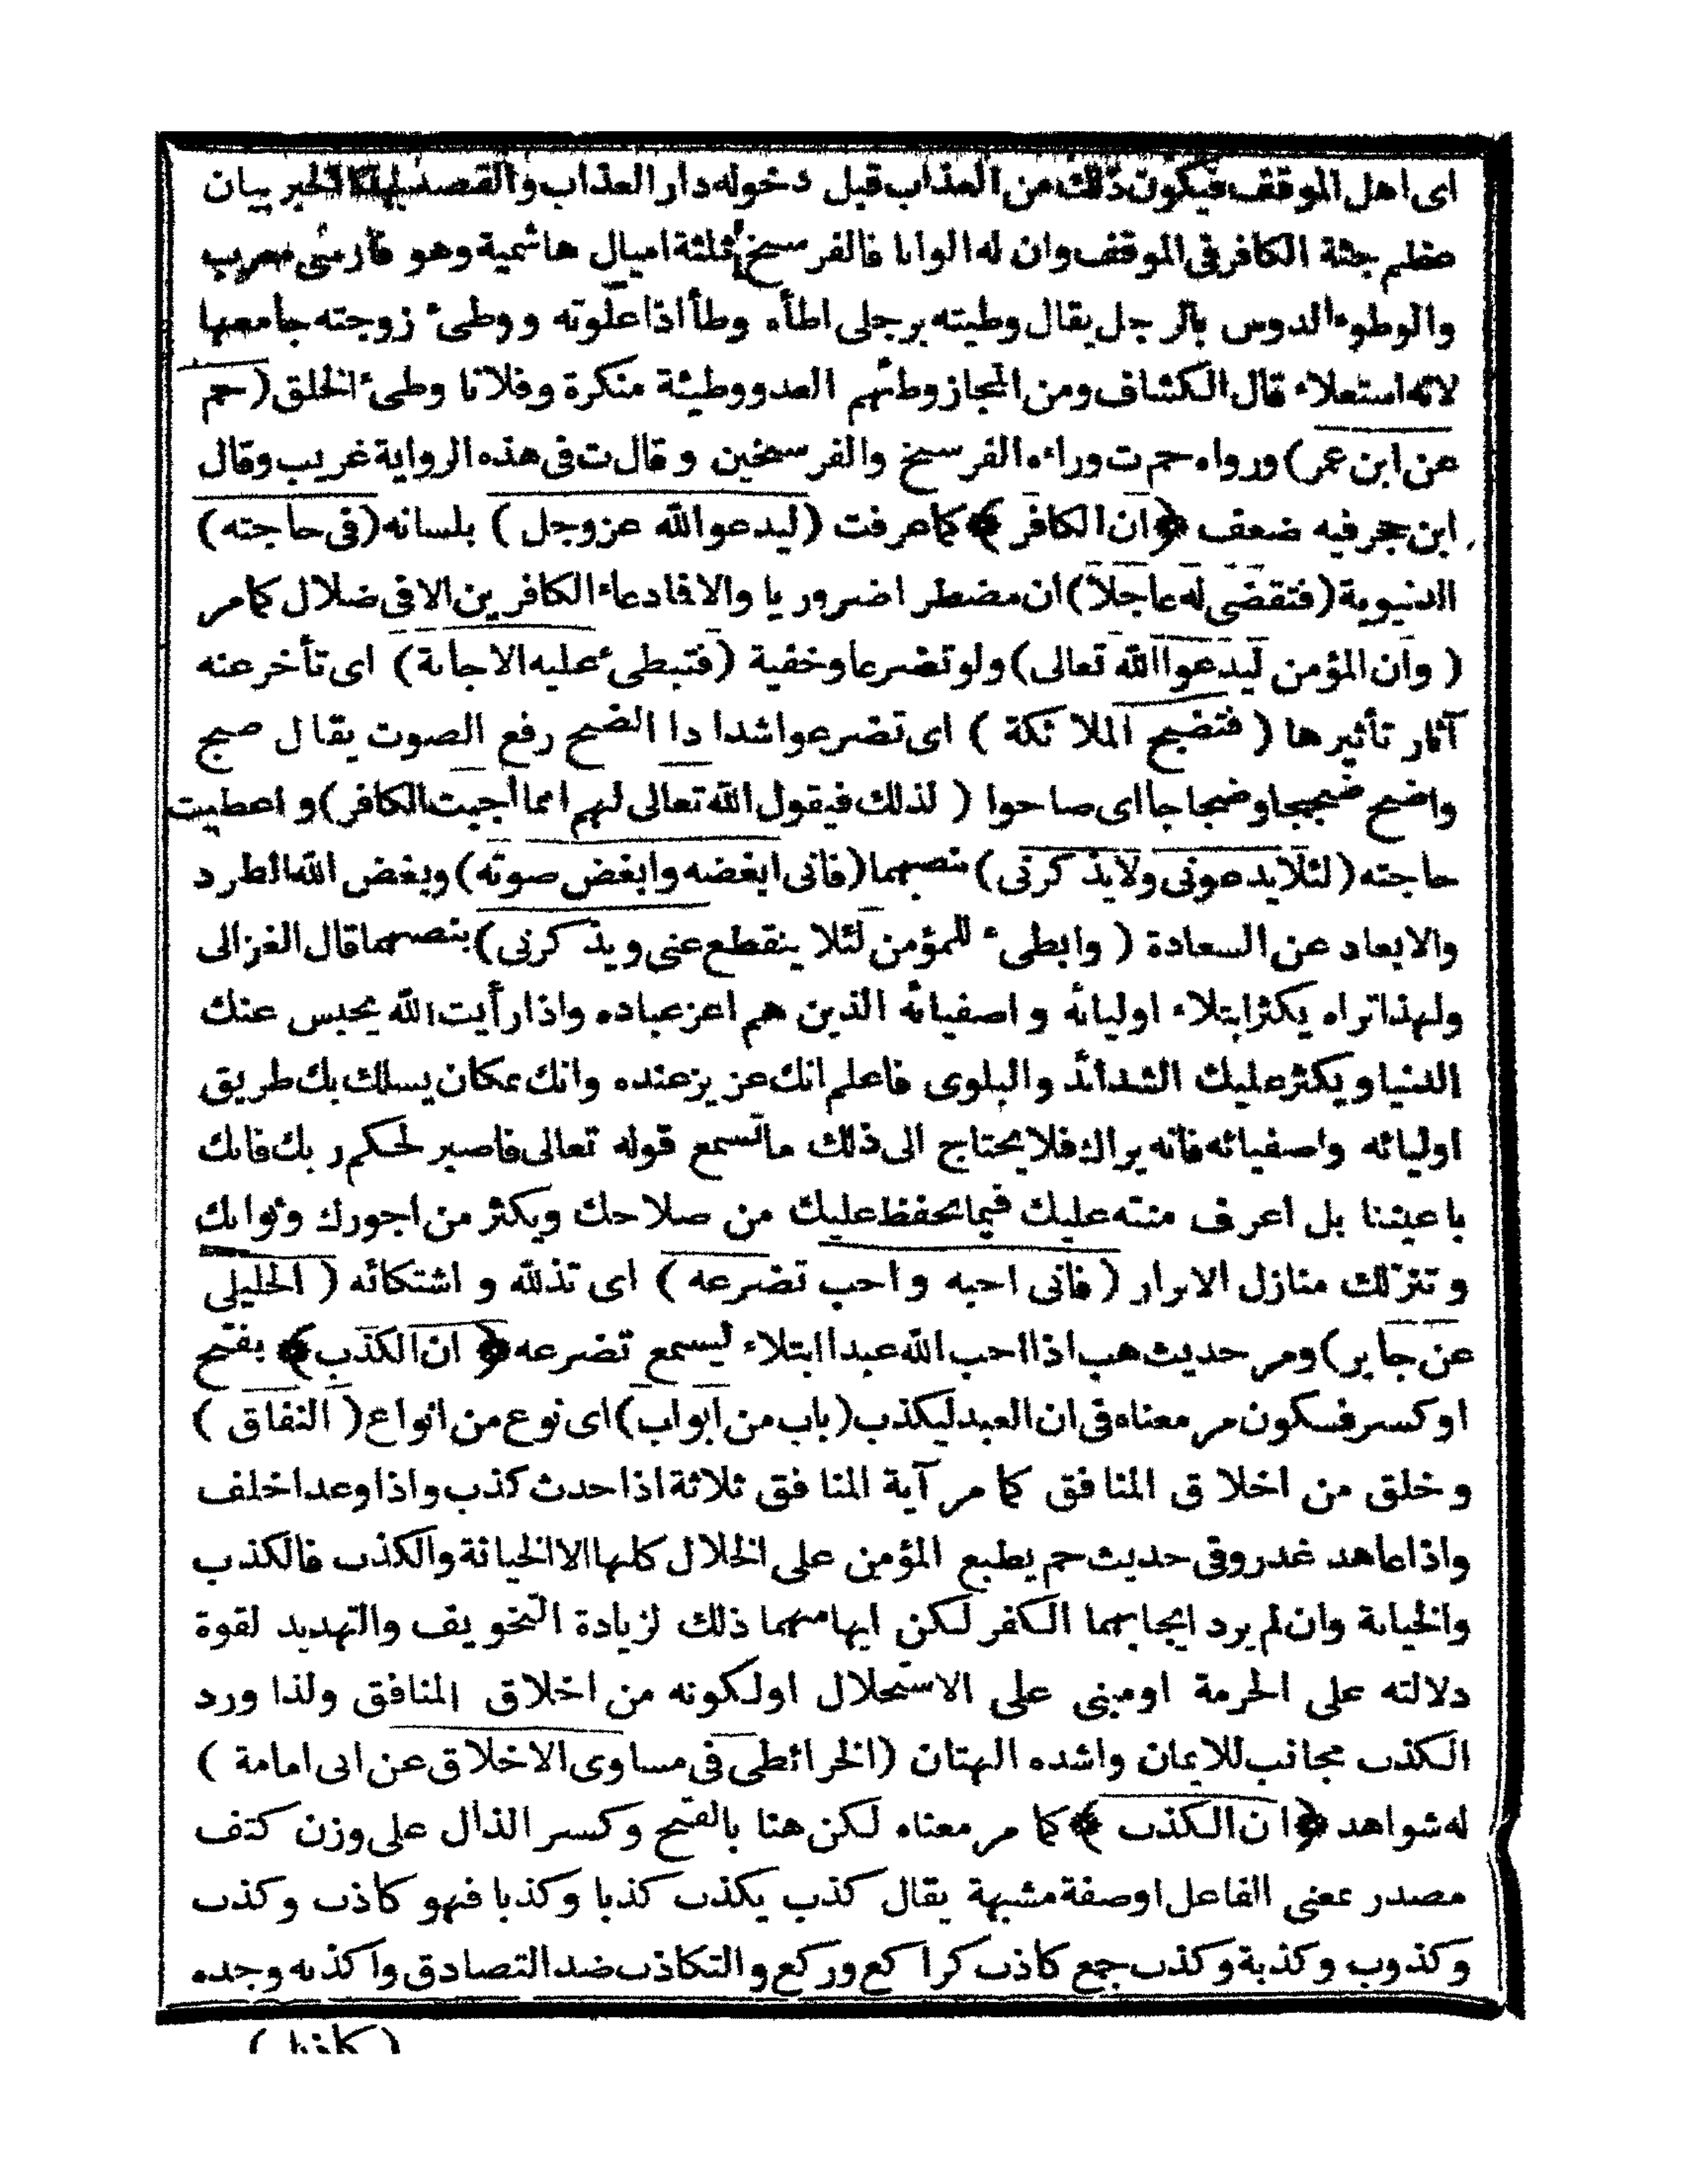 اى اهل الموقف فيكون ذلك من العذاب قبل دخوله دار العذاب والقصد بهذا الخبر بيان
عظم جثة الكافر فى الموقف وان له الوانا فالفرسخ ثلثة اميال هاشمية وهو فارسى معرب
والوطوء الدوس بالرجل يقال وطيته برجلى اطأه وطأ اذا علوته ووطىء زوجته جامعها
لانه استعلاء قال الكشاف ومن المجاز وطئهم العدو وطيئة منكرة وفلانا وطىء الخلق (حم
عن ابن عمر) ورواه حم ت وراءه الفرسخ والفرسخين وقال ت فى هذه الرواية غريب وقال
ابن حجر فيه ضعف ﴿ان الكافر﴾ كما عرفت (ليدعو الله عزوجل) بلسانه (فى حاجته)
الدنيوية (فتقضى له عاجلا) ان مضطر اضروريا والا فادعاء الكافرين الا فى ضلال كما مر
(وان المؤمن ليدعوا الله تعالى) ولو تضرعا وخفية (فتبطىء عليه الاجابة) اى تأخر عنه
آثار تأثيرها (فتضج الملائكة) اى تضرعوا شدادا الضج رفع الصوت يقال ضج
واضج ضجيجا وضجاجا اى صاحوا (لذلك فيقول الله تعالى لهم انما اجبت الكافر) واعطيت
حاجته (لئلا يدعونى ولا يذكرنى) بنصبهما (فانى ابغضه وابغض صوته) وبغض الله الطرد
والابعاد عن السعادة (وابطىء للمؤمن لئلا ينقطع عنى ويذكرنى) بنصبهما قال الغزالى
ولهذا تراه يكثر ابتلاء اوليائه واصفيائه الذين هم اعز عباده واذا رأيت الله يحبس عنك
الدنيا ويكثر عليك الشدائد والبلوى فاعلم انك عزيز عنده وانك بمكان يسلك بك طريق
اوليائه واصفيائه فانه يراك فلا يحتاج الى ذلك ما تسمع قوله تعالى فاصبر لحكم ربك فانك
باعيننا بل اعرف منته عليك فيما يحفظ عليك من صلاحك ويكثر من اجورك وثوابك
وتنزلك منازل الابرار (فانى احبه واحب تضرعه) اى تذلله واشتكائه (الخليلى
عن جابر) ومر حديث هب اذا احب الله عبدا ابتلاء ليسمع تضرعه ﴿ان الكذب﴾ بفتح
او كسر فسكون مر معناه فى ان العبد ليكذب (باب من ابواب) اى نوع من انواع (النفاق)
وخلق من اخلاق المنافق كما مر آية المنافق ثلاثة اذا حدث كذب واذا وعد اخلف
واذا عاهد غدر وفى حديث حم يطبع المؤمن على الخلال كلها الا الخيانة والكذب فالكذب
والخيانة وان لم يرد ايجابهما الكفر لكن ايهامهما ذلك لزيادة التخويف والتهديد لقوة
دلالته على الحرمة او مبنى على الاستحلال او لكونه من اخلاق المنافق ولذا ورد
الكذب مجانب للايمان واشده البهتان (الخرائطى فى مساوى الاخلاق عن ابى امامة)
له شواهد ﴿ان الكذب﴾ كما مر معناه لكن هنا بالفتح وكسر الذال على وزن كتف
مصدر بمعنى الفاعل او صفة مشبهة يقال كذب يكذب كذبا وكذبا فهو كاذب وكذب
وكذوب وكذبة وكذب جمع كاذب كراكع وركع والتكاذب ضد التصادق واكذبه وجده
(كاذبا)